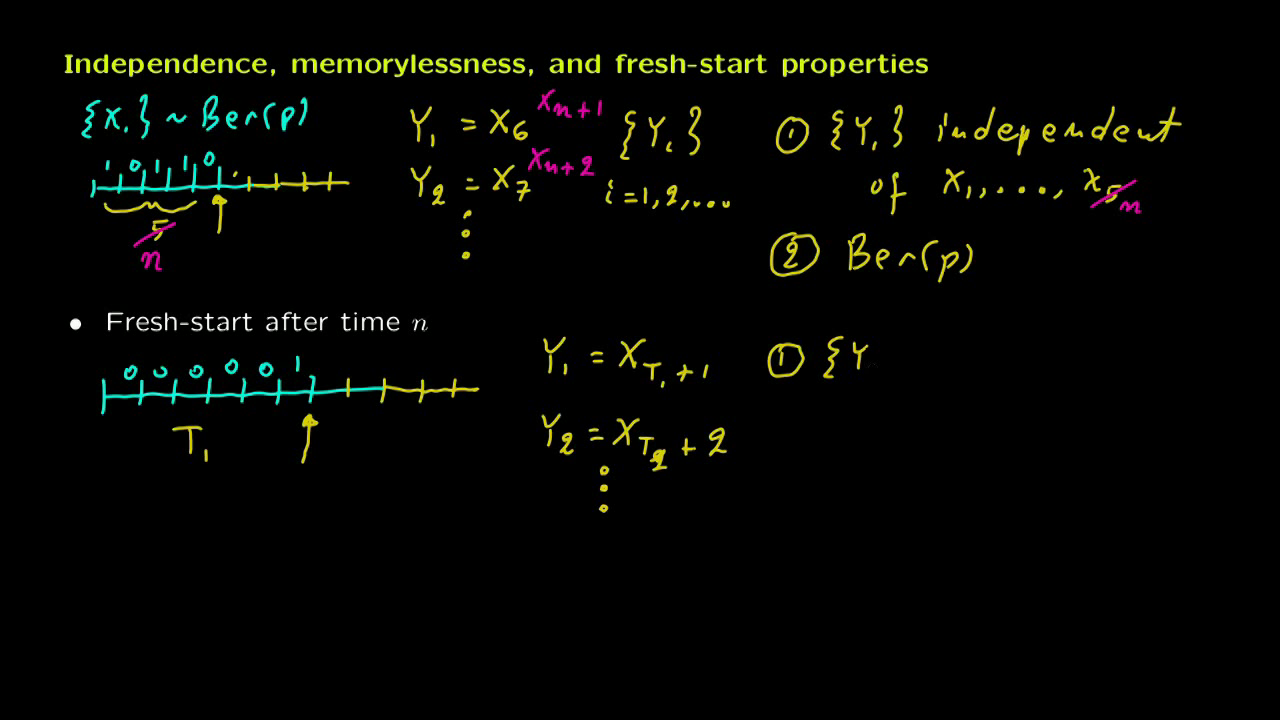 Independence, memorylessness, and fresh-start properties
{Xᵢ} ~ Ber(p)
1 0 1 1 0
5 n
Y₁ = X₆ Xₙ₊₁
Y₂ = X₇ Xₙ₊₂
{Yᵢ}
i = 1, 2, ...
① {Yᵢ} independent
of X₁, ..., X₅ n
② Ber(p)
• Fresh-start after time n
0 0 0 0 0 1
T₁
Y₁ = X_T₁ + 1
Y₂ = X_T₂ + 2
① {Y